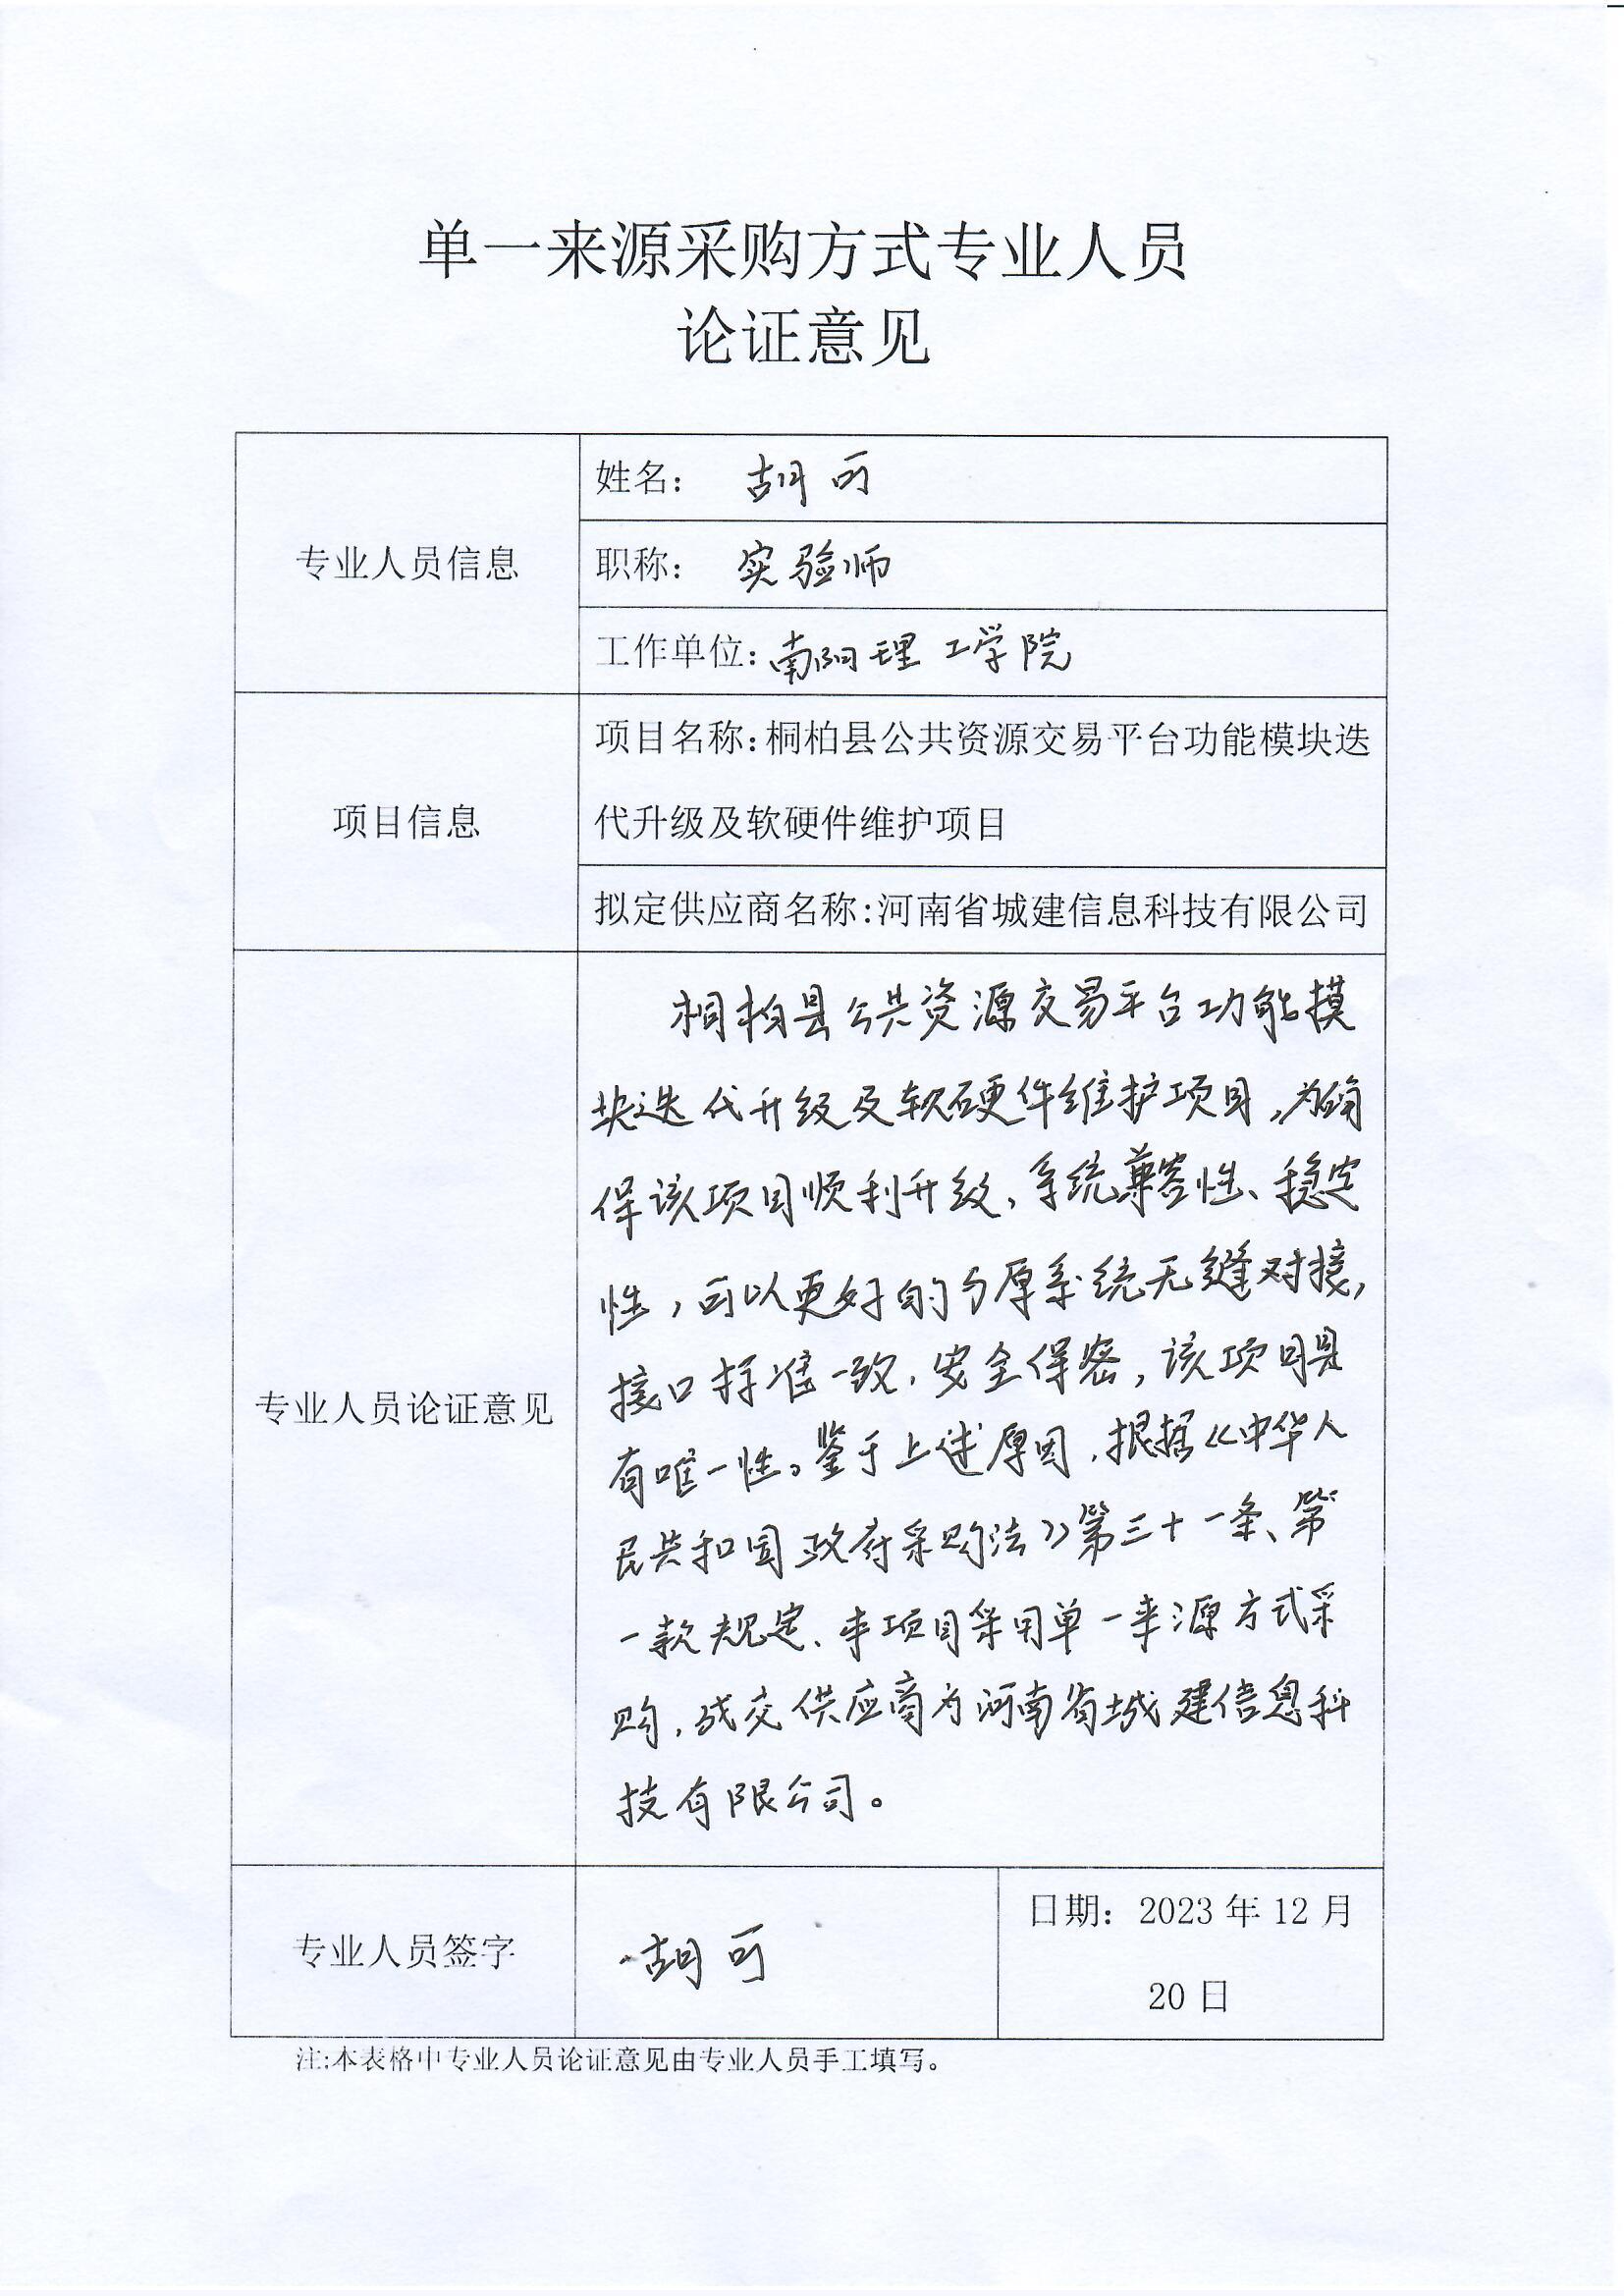 单一来源采购方式专业人员
论证意见
专业人员信息
姓名： 胡可
职称： 实验师
工作单位：南阳理工学院
项目信息
项目名称：桐柏县公共资源交易平台功能模块迭
代升级及软硬件维护项目
拟定供应商名称：河南省城建信息科技有限公司
专业人员论证意见
桐柏县公共资源交易平台功能模
块迭代升级及软硬件维护项目，为确
保该项目顺利升级、系统兼容性、稳定
性，可以更好的与原系统无缝对接，
接口标准一致、安全保密，该项目具
有唯一性。鉴于上述原因，根据《中华人
民共和国政府采购法》第三十一条、第
一款规定、本项目采用单一来源方式采
购，成交供应商为河南省城建信息科
技有限公司。
专业人员签字
胡可
日期：2023年12月
20日
注：本表格中专业人员论证意见由专业人员手工填写。